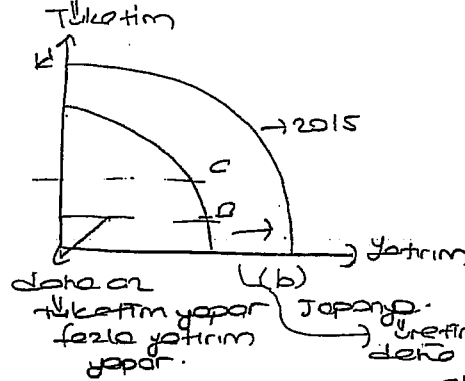 Tüketim
→ 2015
C
D
Yatırım
(b)
daha az
tüketim yapar
fazla yatırım
yapar.
Japonya.
üretim
daha